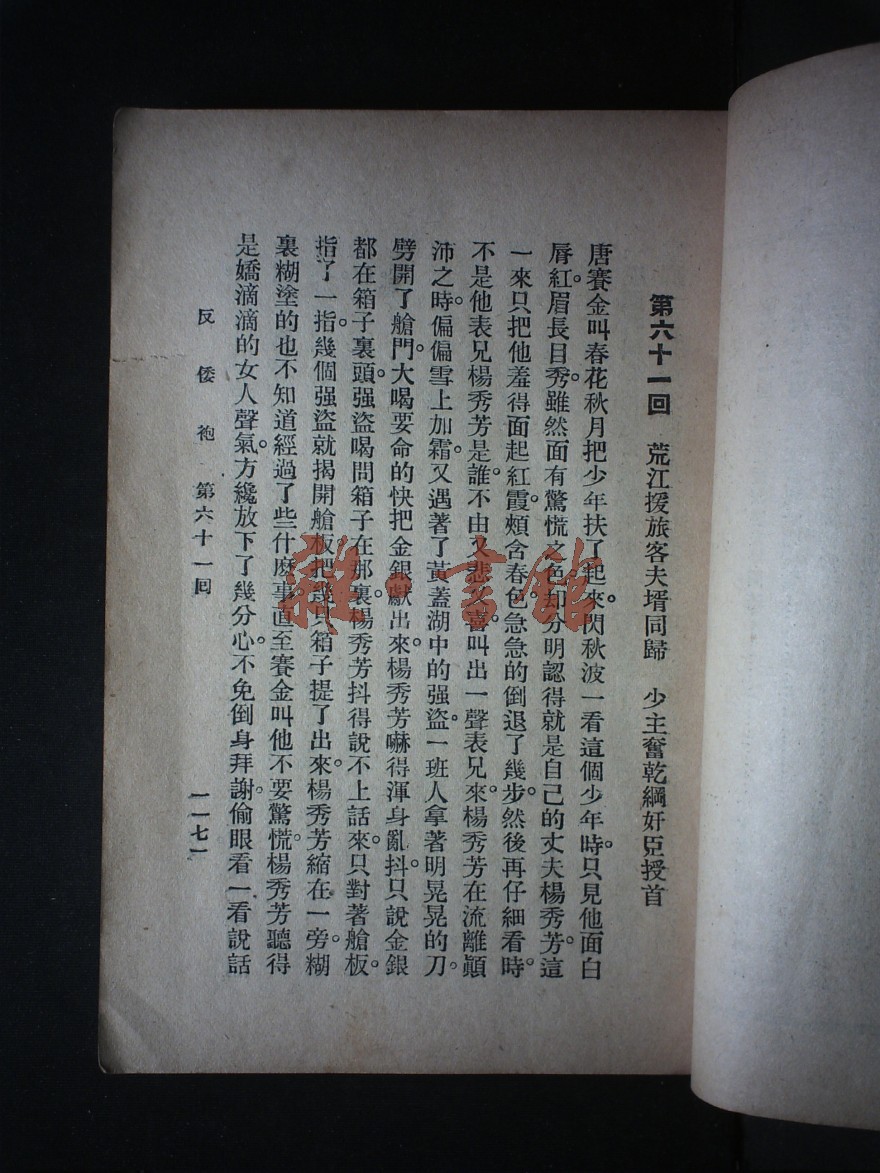 第六十一回　荒江援旅客夫壻同歸　少主奮乾綱奸臣授首
唐賽金叫春花秋月把少年扶了起來。閃秋波一看這個少年時。只見他面白
唇紅。眉長目秀。雖然面有驚慌之色。却分明認得就是自己的丈夫楊秀芳。這
一來只把他羞得面起紅霞。頰含春色。急急的倒退了幾步。然後再仔細看時。
不是他表兄楊秀芳是誰。不由又悲又喜。叫出一聲表兄來。楊秀芳在流離顚
沛之時。偏偏雪上加霜。又遇著了黃蓋湖中的强盜。一班人拿著明晃晃的刀。
劈開了艙門。大喝要命的快把金銀獻出來。楊秀芳嚇得渾身亂抖。只說金銀
都在箱子裏頭。强盜喝問箱子在那裏。楊秀芳抖得說不上話來。只對著艙板
指了一指。幾個强盜就揭開艙板。把幾只箱子提了出來。楊秀芳縮在一旁。糊
裏糊塗的也不知道經過了些什麽事。直至賽金叫他不要驚慌。楊秀芳聽得
是嬌滴滴的女人聲氣。方纔放下了幾分心。不免倒身拜謝。偷眼看一看說話
反倭袍　第六十一回　一一七一
雜書館